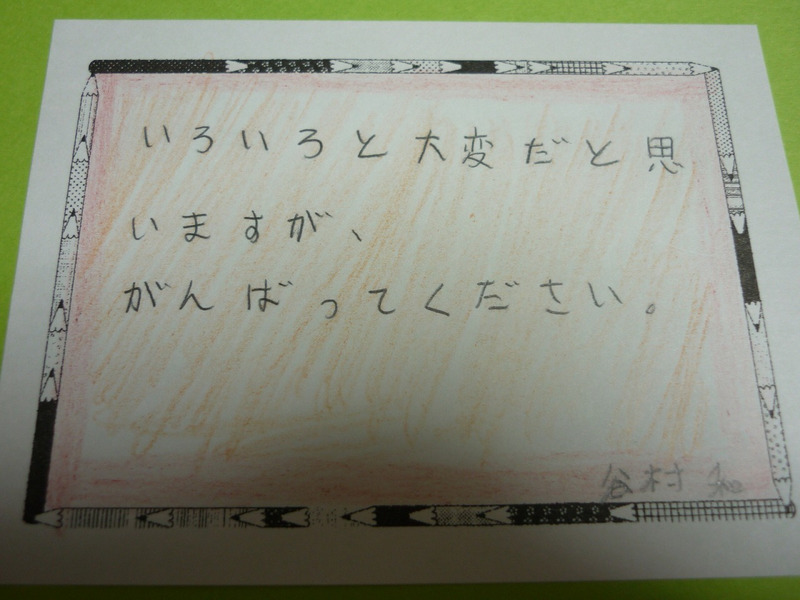 いろいろと大変だと思
いますが、
がんばってください。
谷村 和